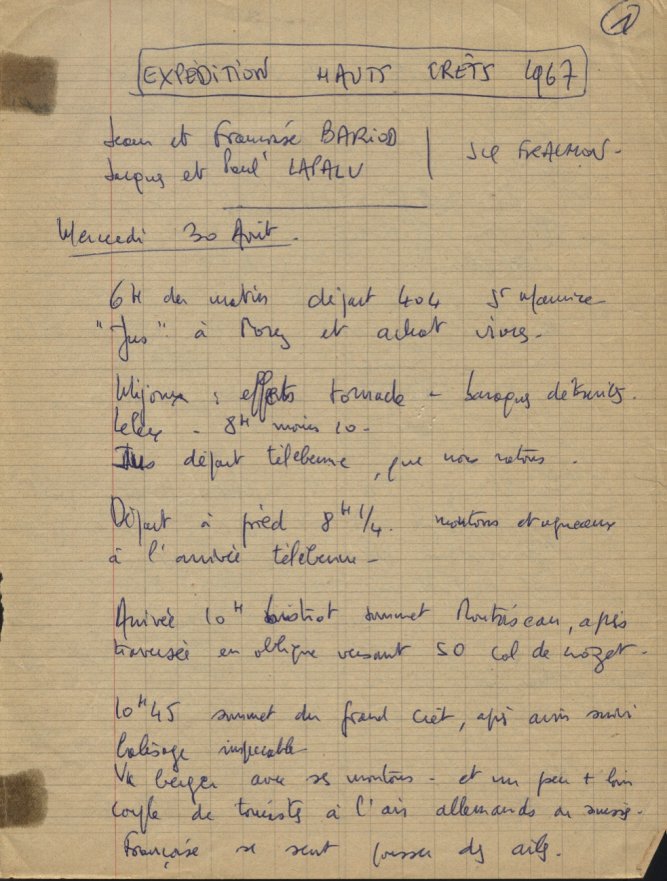 1
EXPÉDITION HAUTS CRÊTS 1967
Jean et Françoise BARIOD
Jacques et Paul LAPALU
FRACHON -
Mercredi 30 Août.
6H du matin départ 404 St Maurice
"Jus" à Morez et achat vivres.
Mijoux : effets tornade - baraques détruites.
Lelex - 8H moins 10 -
départ télébenne, que nous ratons.
Départ à pied 8H 1/4. moutons et agneaux
à l'arrivée télébenne -
Arrivée 10H bistrot sommet Montoiseau, après
traversée en oblique versant SO col de Crozet -
10H45 sommet du grand Crêt, après avoir suivi
balisage impeccable
Vu berger avec ses moutons - et un peu + loin
couple de touristes à l'air allemands ou suisses -
Françoise se sent pousser des ailes.